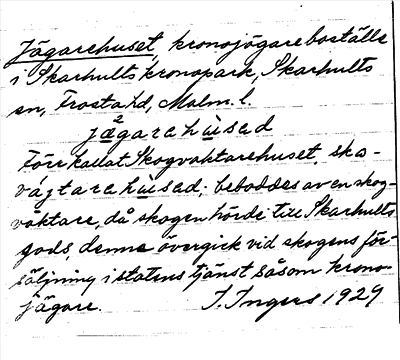 Jägarehuset, kronojägareboställe
i Skarhults kronopark, Skarhults
sn, Frosta hd, Malm. l.
jægarehùsad
Förr kallat Skogvaktarehuset, sko-
váj̨tarehùsad; beboddes av en skog-
vaktare, då skogen hörde till Skarhults
gods, denne övergick vid skogens för-
säljning i statens tjänst såsom krono-
jägare. I. Ingers 1929